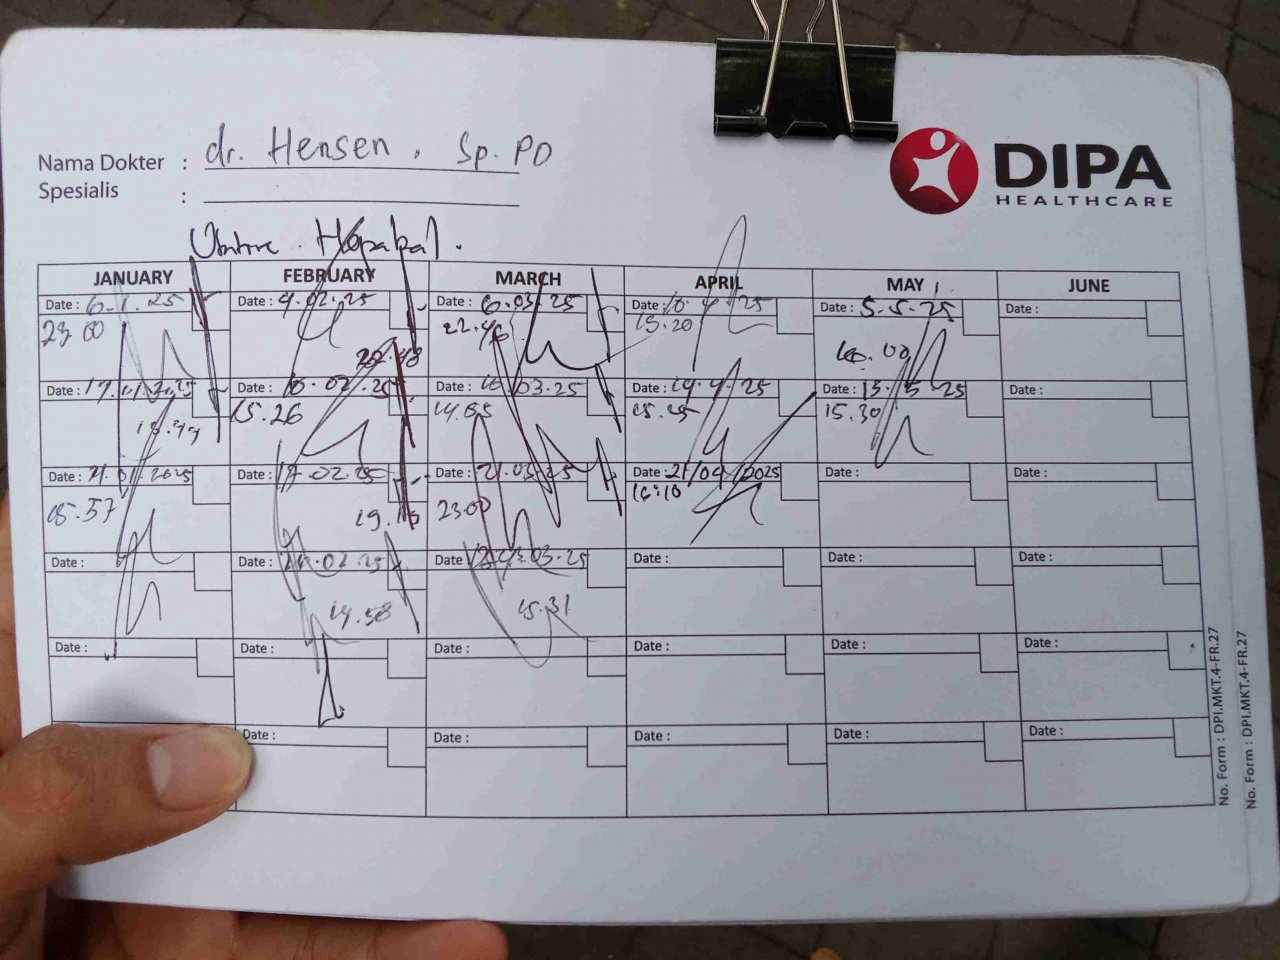 Nama Dokter : dr. Hensen, Sp. PD
Spesialis :
DIPA
HEALTHCARE
JANUARY FEBRUARY MARCH APRIL MAY JUNE
Date : 6.1.25 Date : 4.02.25 Date : 6.03.25 Date : 10.4.25 Date : 5.5.25 Date :
23.00 22.48 22.46 15.20 16.00
Date : 17.01.2025 Date : 10.02.25 Date : 10.03.25 Date : 14.4.25 Date : 15.5.25 Date :
15.26 14.55 15.25 15.30
Date : 21.01.2025 Date : 17.02.25 Date : 21.03.25 Date : 21/04/2025 Date : Date :
15.57 23.00 16:10
Date : Date : Date : 24.03.25 Date : Date : Date :
14.58 15.31
Date : Date : Date : Date : Date : Date :
Date : Date : Date : Date : Date :
No. Form : DPI.MKT.4-FR.27
No. Form : DPI.MKT.4-FR.27